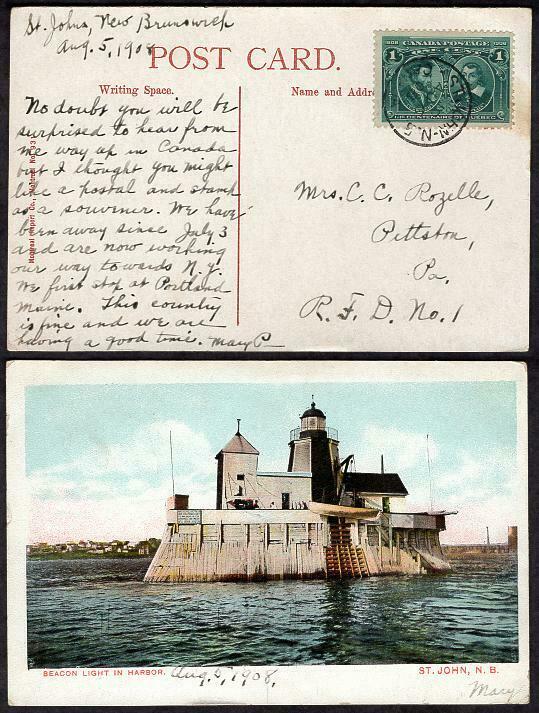 St. Johns, New Brunswick
Aug. 5, 1908
POST CARD.
Writing Space.
No doubt you will be
surprised to hear from
me way up in Canada
but I thought you might
like a postal and stamp
as a souvenir. We have
been away since July 3
and are now working
our way towards N.Y.
We first stop at Portland
Maine. This country
is fine and we are
having a good time. Mary P
Montreal Import Co., Montreal No.
Name and Addre
CANADA POSTAGE
1608 1908
1 1
IIIE CENTENAIRE DE QUEBEC
ST. JOHN. N.B
Mrs. C. C. Rozelle,
Pittston,
Pa.
R. F. D. No. 1
BEACON LIGHT IN HARBOR. Aug. 5, 1908.
ST. JOHN, N. B.
Mary